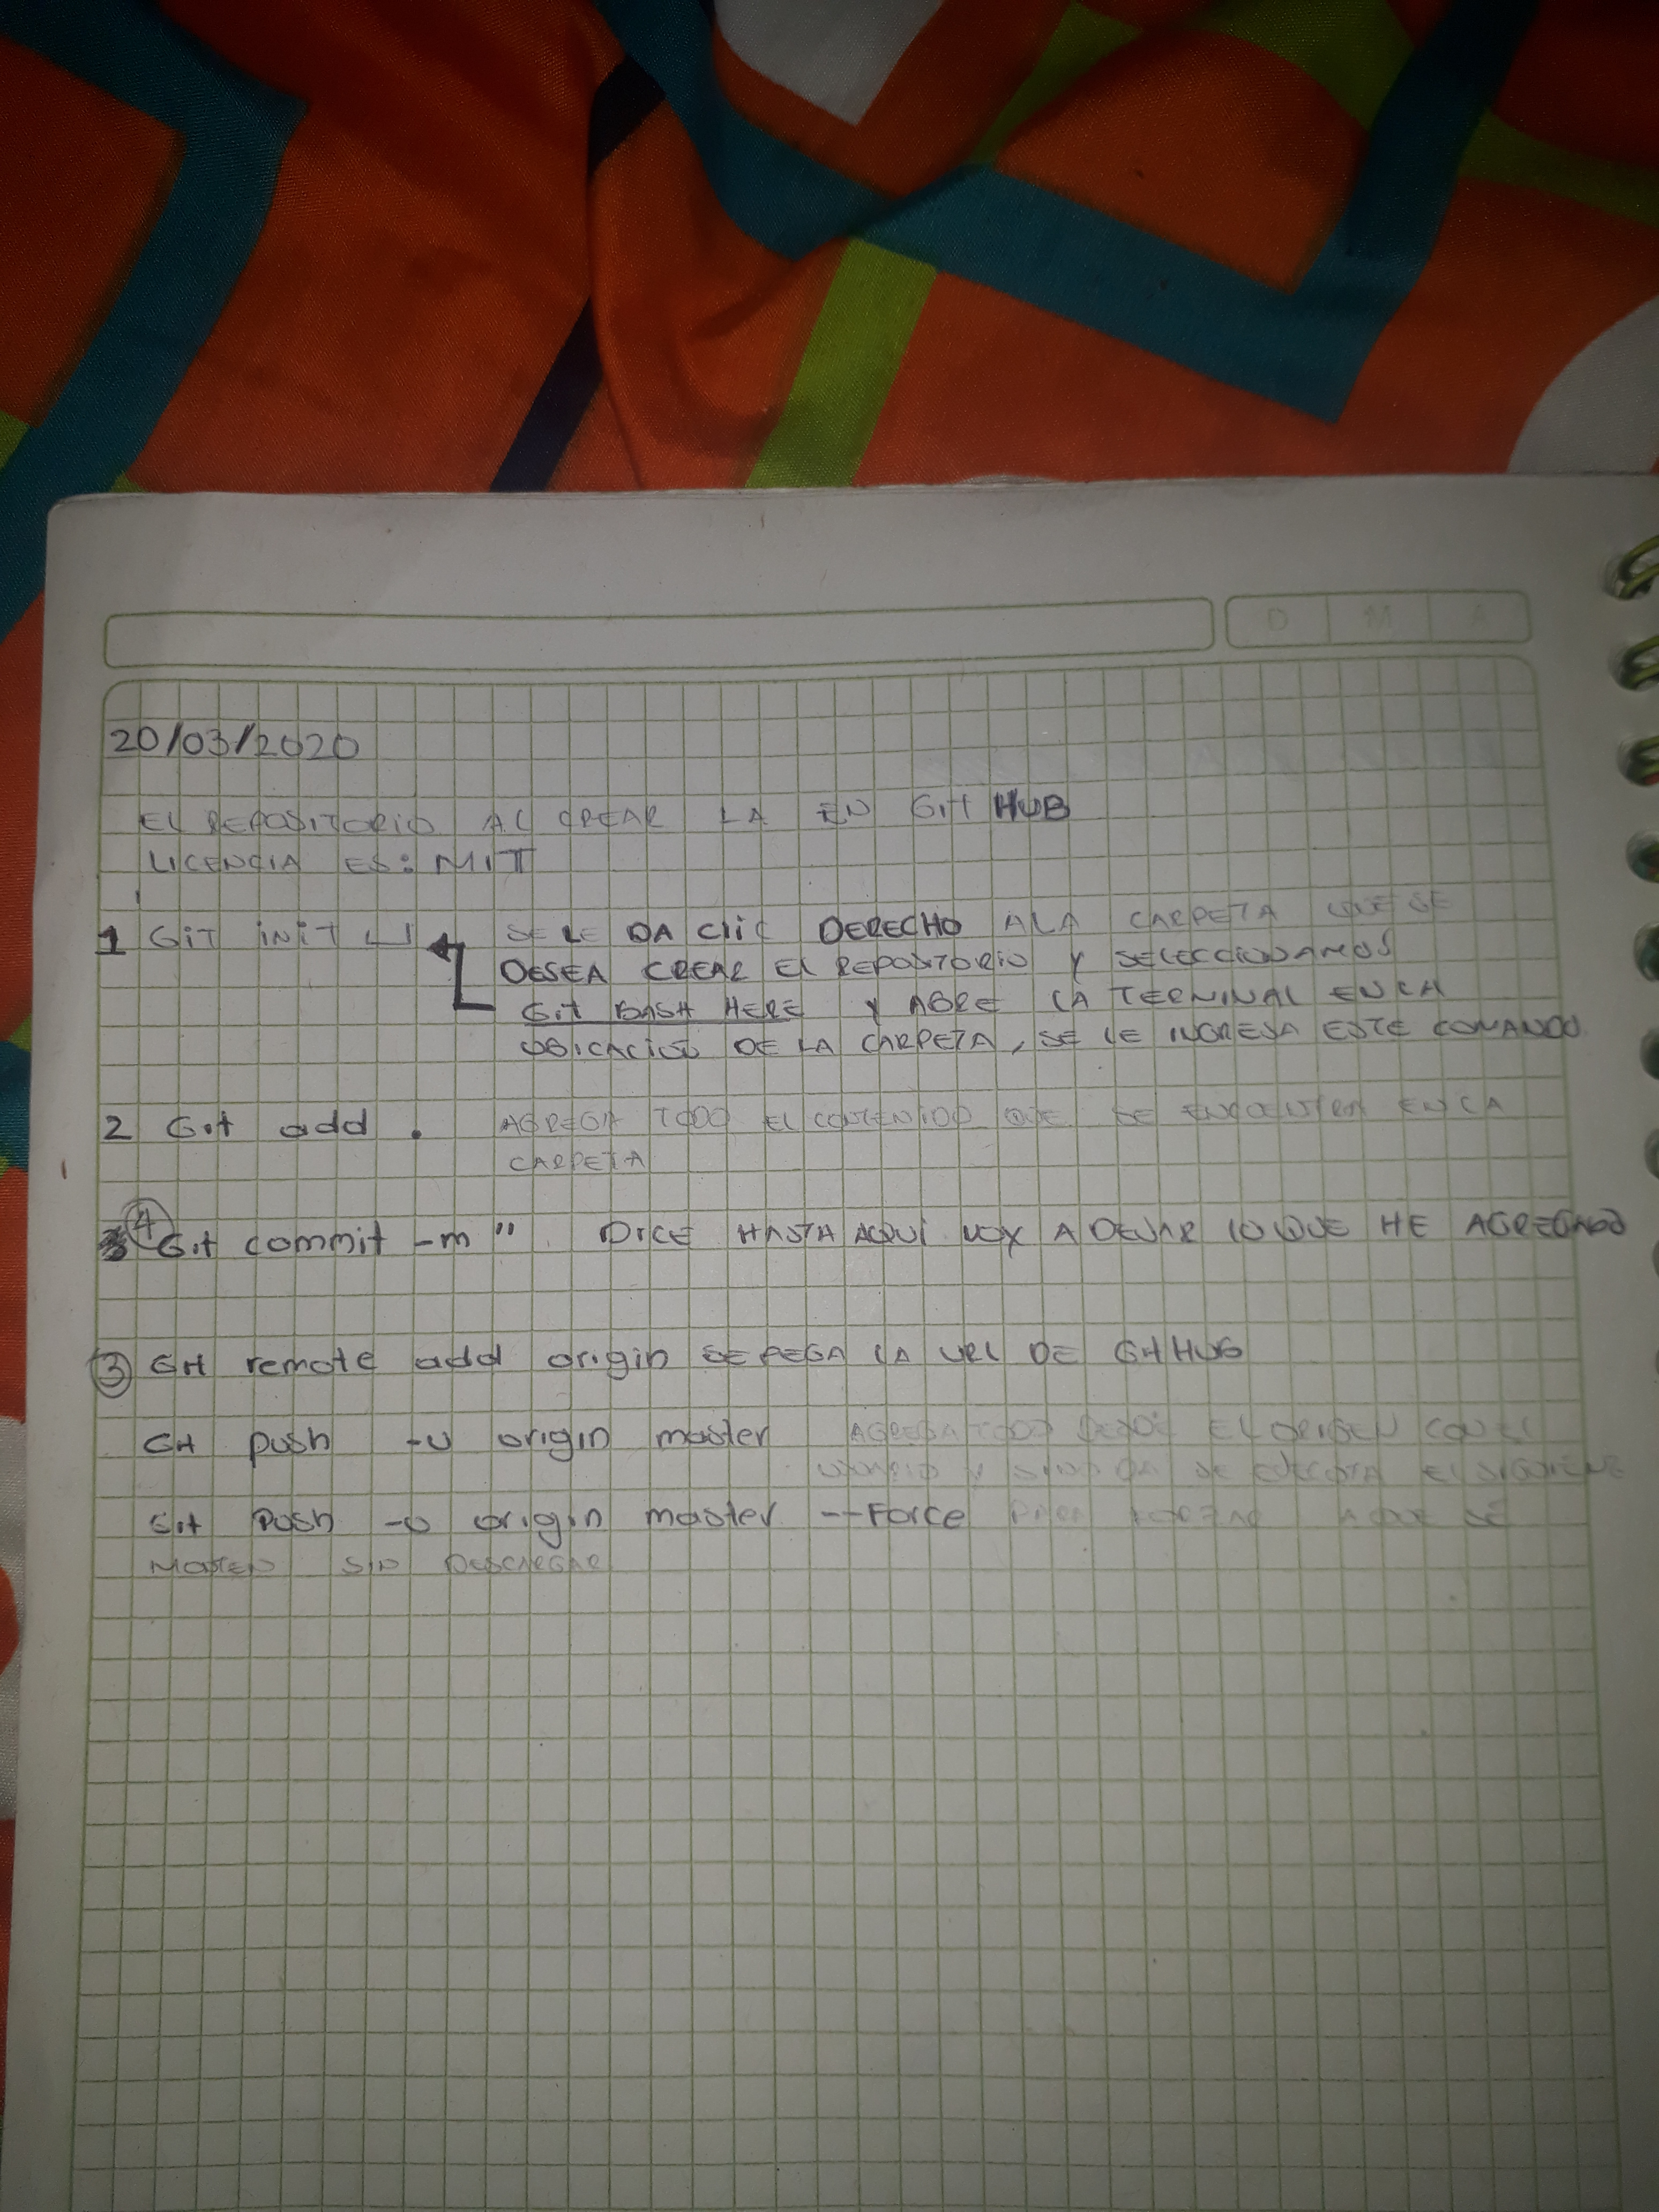 D M A
20/03/2020
EL REPOSITORIO AL CREAR LA EN GIT HUB
LICENCIA ES: MIT
1 GIT INIT SE LE DA CLIC DERECHO A LA CARPETA QUE SE
DESEA CREAR EL REPOSITORIO Y SELECCIONAMOS
Git BASH HERE Y ABRE LA TERMINAL EN LA
UBICACIÓN DE LA CARPETA, SE LE INGRESA ESTE COMANDO
2 Git add . AGREGA TODO EL CONTENIDO QUE SE ENCUENTRA EN LA
CARPETA
4 Git commit -m " DICE HASTA AQUÍ VOY A DEJAR LO QUE HE AGREGADO
3 Git remote add origin SE PEGA LA URL DE GitHUB
Git push -u origin master AGREGA TODO DESDE EL ORIGEN CON EL
Y SE EJECUTA EL SIGUIENTE
Git Push -u origin master --Force PARA FORZAR A QUE SE
SIN DESCARGAR